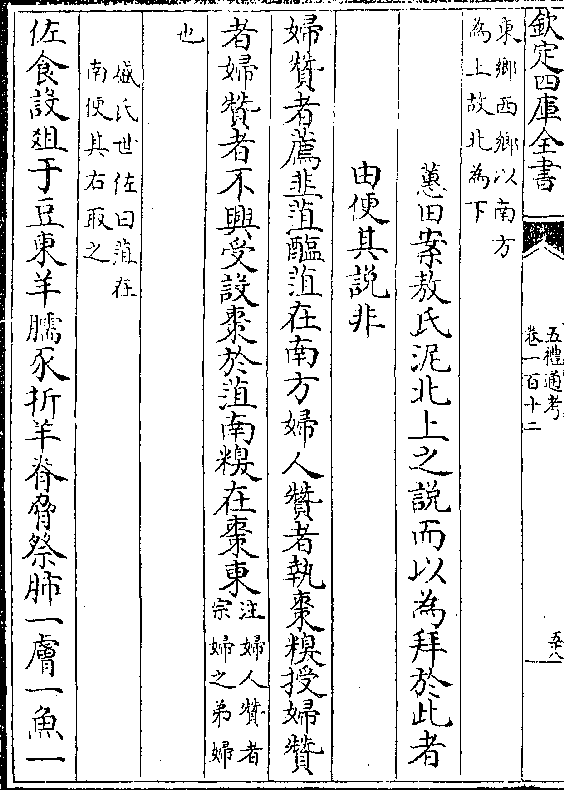 欽定四庫全書
五禮通考
卷一百十二
五十八
東鄉西鄉以南方
為上故北為下
蕙田案敖氏泥北上之說而以為拜於此者
由便其說非
婦贊者薦韭菹醢菹在南方婦人贊者執棗糗授婦贊
者婦贊者不興受設棗於菹南糗在棗東
注婦人贊者
宗婦之弟婦
也
盛氏世佐曰菹在
南便其右取之
佐食設俎于豆東羊臑豕折羊脊脅祭肺一膚一魚一